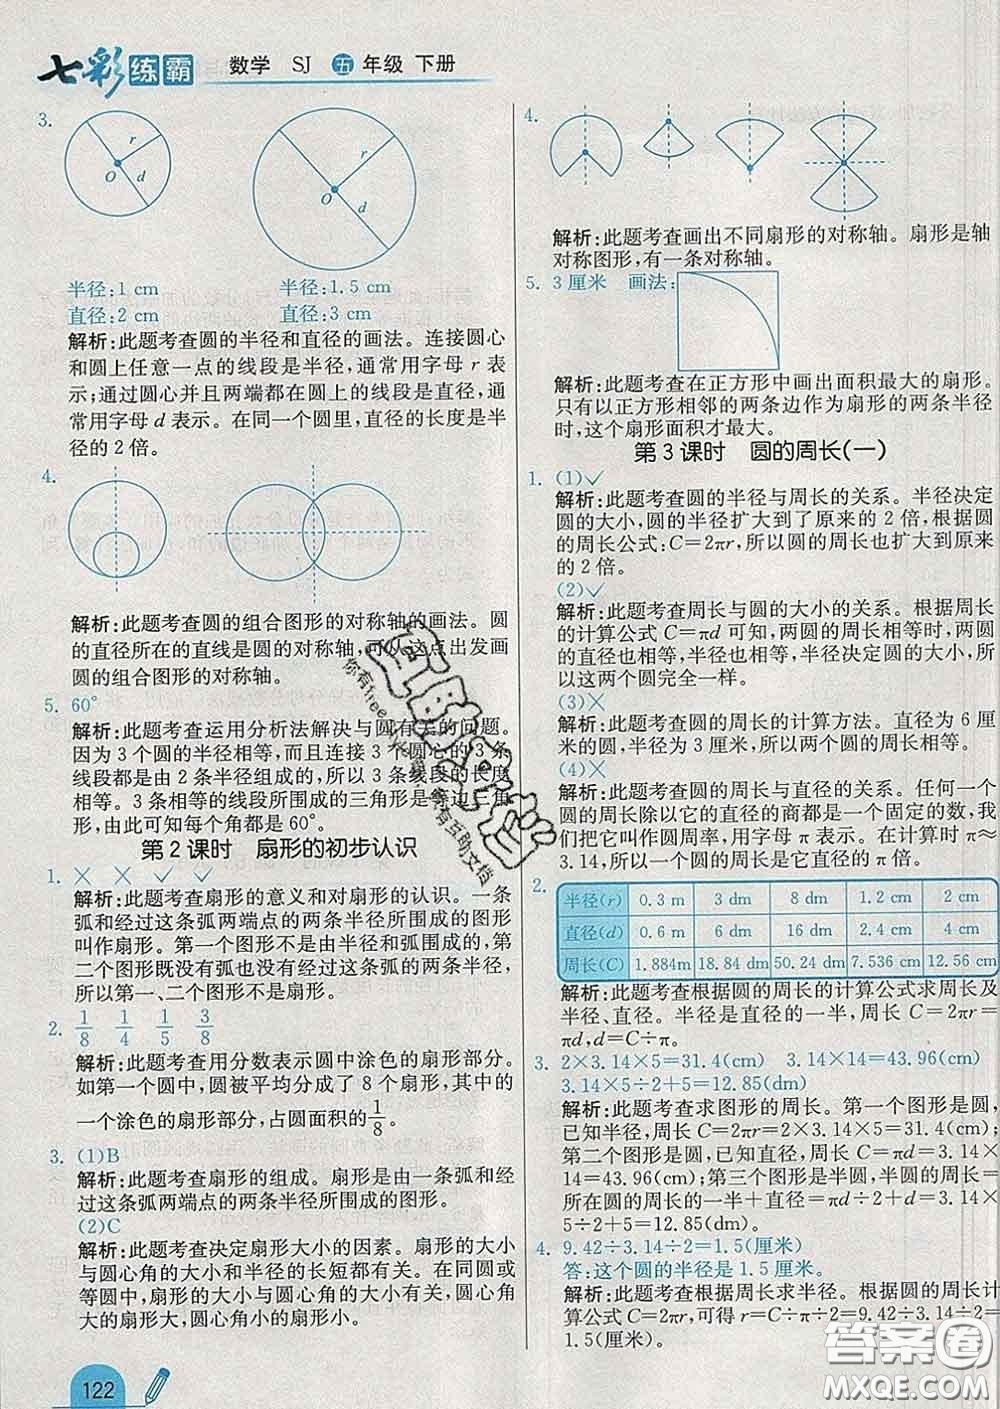 七彩练霸 数学 SJ 五年级 下册
3.
O r d
O r d
半径:1 cm 半径:1.5 cm
直径:2 cm 直径:3 cm
解析:此题考查圆的半径和直径的画法。连接圆心
和圆上任意一点的线段是半径,通常用字母 r 表
示;通过圆心并且两端都在圆上的线段是直径,通
常用字母 d 表示。在同一个圆里,直径的长度是半
径的 2 倍。
4.
解析:此题考查圆的组合图形的对称轴的画法。圆
的直径所在的直线是圆的对称轴,可以这点出发画
圆的组合图形的对称轴。
5. 60°
解析:此题考查运用分析法解决与圆有关的问题。
因为 3 个圆的半径相等,而且连接 3 个圆心的 3 条
线段都是由 2 条半径组成的,所以 3 条线段的长度
相等。3 条相等的线段所围成的三角形是等边三角
形,由此可知每个角都是 60°。
第 2 课时 扇形的初步认识
1. ✕ ✕ ✓ ✓
解析:此题考查扇形的意义和对扇形的认识。一条
弧和经过这条弧两端点的两条半径所围成的图形
叫作扇形。第一个图形不是由半径和弧围成的,第
二个图形既没有弧也没有经过这条弧的两条半径,
所以第一、二个图形不是扇形。
2. 1/8 1/4 1/5 3/8
解析:此题考查用分数表示圆中涂色的扇形部分。
如第一个圆中,圆被平均分成了 8 个扇形,其中的
一个涂色的扇形部分,占圆面积的1/8。
3. (1)B
解析:此题考查扇形的组成。扇形是由一条弧和经
过这条弧两端点的两条半径所围成的图形。
(2)C
解析:此题考查决定扇形大小的因素。扇形的大小
与圆心角的大小和半径的长短都有关。在同圆或
等圆中,扇形的大小与圆心角的大小有关,圆心角
大的扇形大,圆心角小的扇形小。
122
4.
解析:此题考查画出不同扇形的对称轴。扇形是轴
对称图形,有一条对称轴。
5. 3 厘米 画法:
解析:此题考查在正方形中画出面积最大的扇形。
只有以正方形相邻的两条边作为扇形的两条半径
时,这个扇形面积才最大。
第 3 课时 圆的周长(一)
1. (1)✓
解析:此题考查圆的半径与周长的关系。半径决定
圆的大小,圆的半径扩大到了原来的 2 倍,根据圆
的周长公式:C=2πr,所以圆的周长也扩大到原来
的 2 倍。
(2)✓
解析:此题考查周长与圆的大小的关系。根据周长
的计算公式 C=πd 可知,两圆的周长相等时,两圆
直径也相等,半径也相等,半径决定圆的大小,所
以这两个圆完全一样。
(3)✕
解析:此题考查圆的周长的计算方法。直径为 6 厘
米的圆,半径为 3 厘米,所以两个圆的周长相等。
(4)✕
解析:此题考查圆的周长与直径的关系。任何一个
圆的周长除以它的直径的商都是一个固定的数,我
们把它叫作圆周率,用字母 π 表示。在计算时 π≈
3.14,所以一个圆的周长是它直径的 π 倍。
2.
半径(r) 0.3 m 3 dm 8 dm 1.2 cm 2 cm
直径(d) 0.6 m 6 dm 16 dm 2.4 cm 4 cm
周长(C) 1.884m 18.84 dm 50.24 dm 7.536 cm 12.56 cm
解析:此题考查根据圆的周长的计算公式求周长及
半径、直径。半径是直径的一半,周长 C=2πr=
πd,d=C÷π。
3. 2×3.14×5=31.4(cm) 3.14×14=43.96(cm)
3.14×5÷2+5=12.85(dm)
解析:此题考查求图形的周长。第一个图形是圆,
已知半径,周长 C=2πr=2×3.14×5=31.4(cm);
第二个图形是圆,已知直径,周长 C=πd=3.14×
14=43.96(cm);第三个图形是半圆,半圆的周长=
所在圆的周长的一半+直径=πd÷2+d=3.14×
5÷2+5=12.85(dm)。
4. 9.42÷3.14÷2=1.5(厘米)
答:这个圆的半径是 1.5 厘米。
解析:此题考查根据周长求半径。根据圆的周长计
算公式 C=2πr,可得 r=C÷π÷2=9.42÷3.14÷2=
1.5(厘米)。
答案圈
MXQE.COM